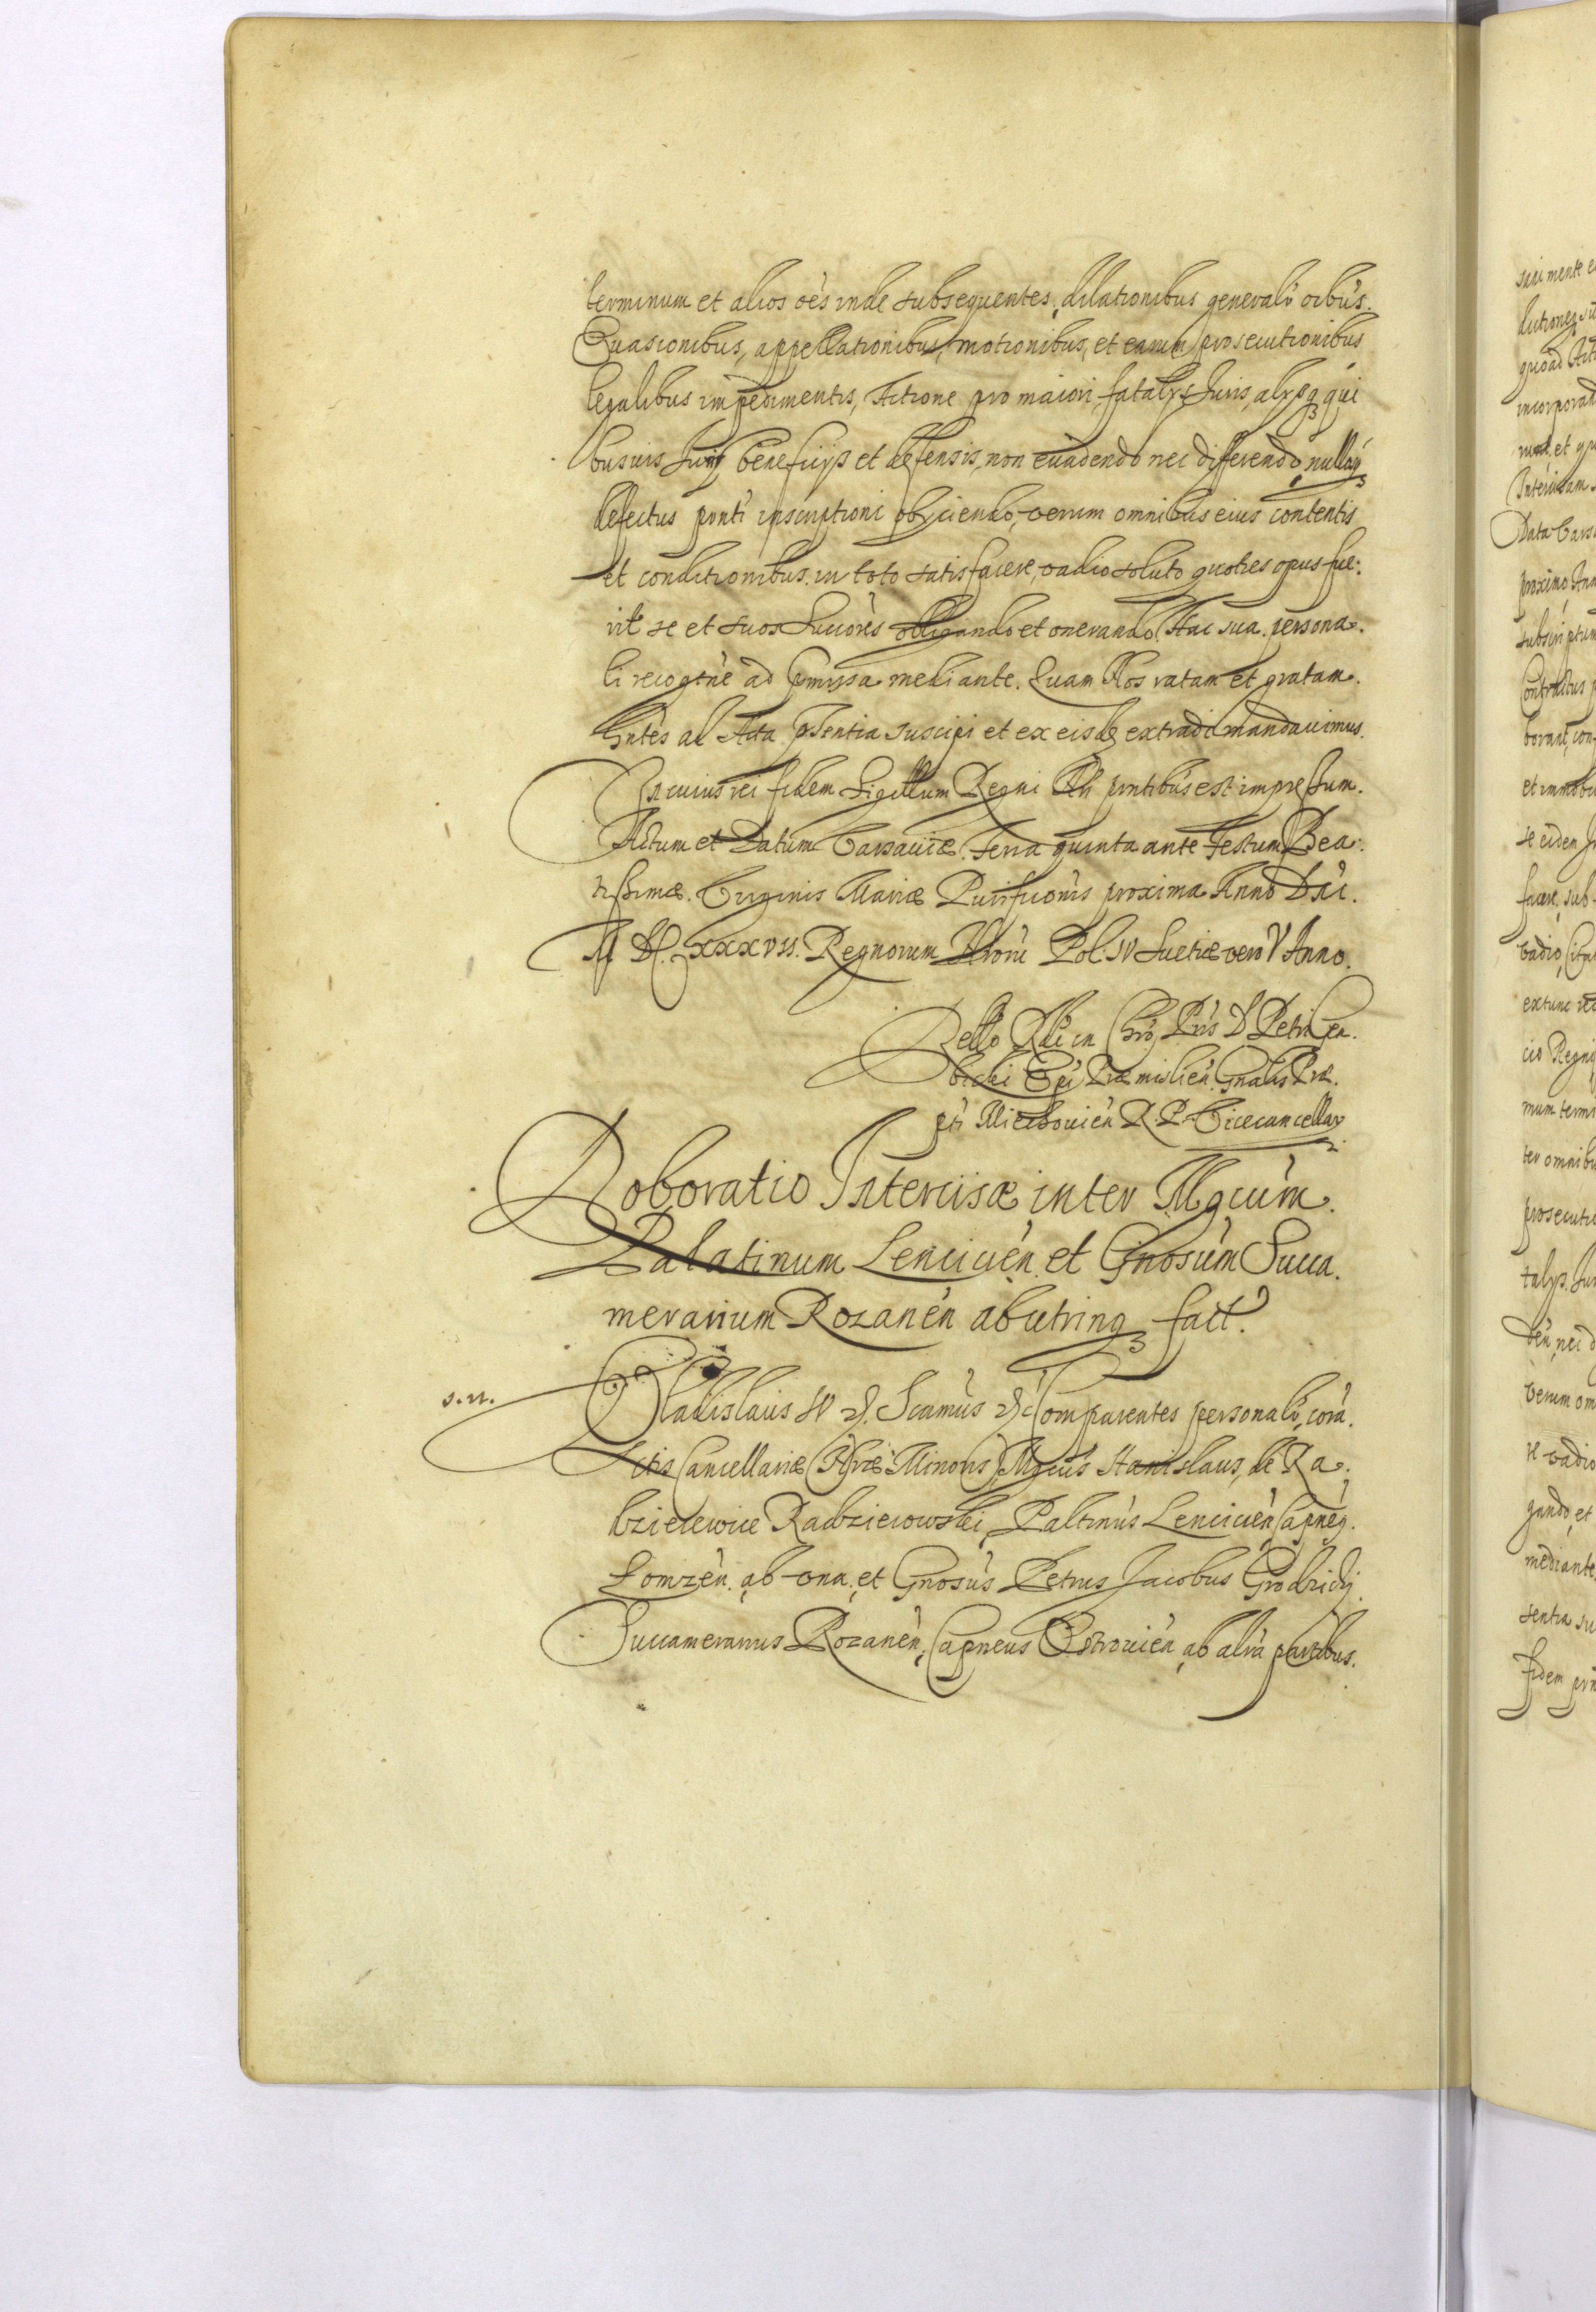 terminum et alios oe̅s inde subsequentes, dilationibus generalr̅ oibu̅s.
Euasionibus, appellationibus, motionibus, et earum prosecutionibus
legalibus impedimentis, Actione pro maiori, fatalys Juris, alysq̃ qui
busuis Juris beneficijs et defensis, non euadendo nec differendo, nullosq̃
defectus pn̅ti inscriptioni obijciendo, verum omnibus eius contentis
et conditionibus in toto satisfacere, vadio soluto quoties opus fue:
rit se et suos Succo̅res obligando et onerando. Hac sua persona.
li recogtn̅e ad pr̅missa mediante. Quam Nos ratam et gratam.
hn̅tes ad Acta pr̅sentia suscipi et ex eisdẽ extradi mandauimus.
In cuius rei fidem Sigillum Regni N̅ri pn̅tibus est impressum.
Actum et Datum Varsauiæ. Feria quinta ante Festum Bea:
tissimæ. Virginis Mariæ Purificõnis proxima Anno Dn̅i.
M DC. XXXVII. Regnorum N̅roru̅ Pol: IV Suetiæ vero V Anno.
Rel̅lo R̅di in Chr̅o P̅ris D Petri Gem.
bicki Ep̅i Præmislien̅. Gn̅alis Præ.
p̅ti Miechouien̅ R. P. Vicecancellar̅
Roboratio Intercisæ inter Mg̅cum.
Palatinum Lencicien̅. et Gn̅osum Succa.
merarium Rozanen̅ ab utrinq̃ fact.
s. n.
Vladislaus IV &. Sc̅amus &c̅ Comparentes personalr̅, cora̅.
Actis Cancellariæ N̅ræ Minoris Mg̅cus Stanislaus, de Ra.
dzieiewice Radzieiowski, Palt̅inus Lencicien̅ Capn̅eq̃.
Łomzen̅. ab vna, et Gn̅osus Petrus Jacobus Grodzicki.
Succamerarius Rozanen̅, Capn̅eus Ostrouien̅, ab alr̅a partibus.